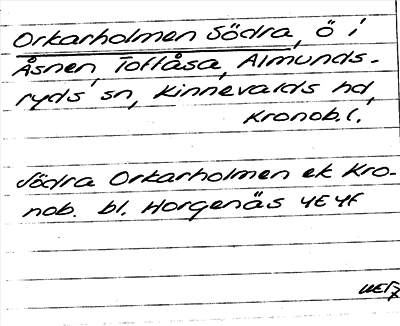 Orkarholmen Södra, ö i
Åsnen, Toftåsa, Almunds-
ryds sn, Kinnevalds hd,
Kronob. l.
Södra Orkarholmen ek Kro-
nob. bl. Horgenäs 4E4f